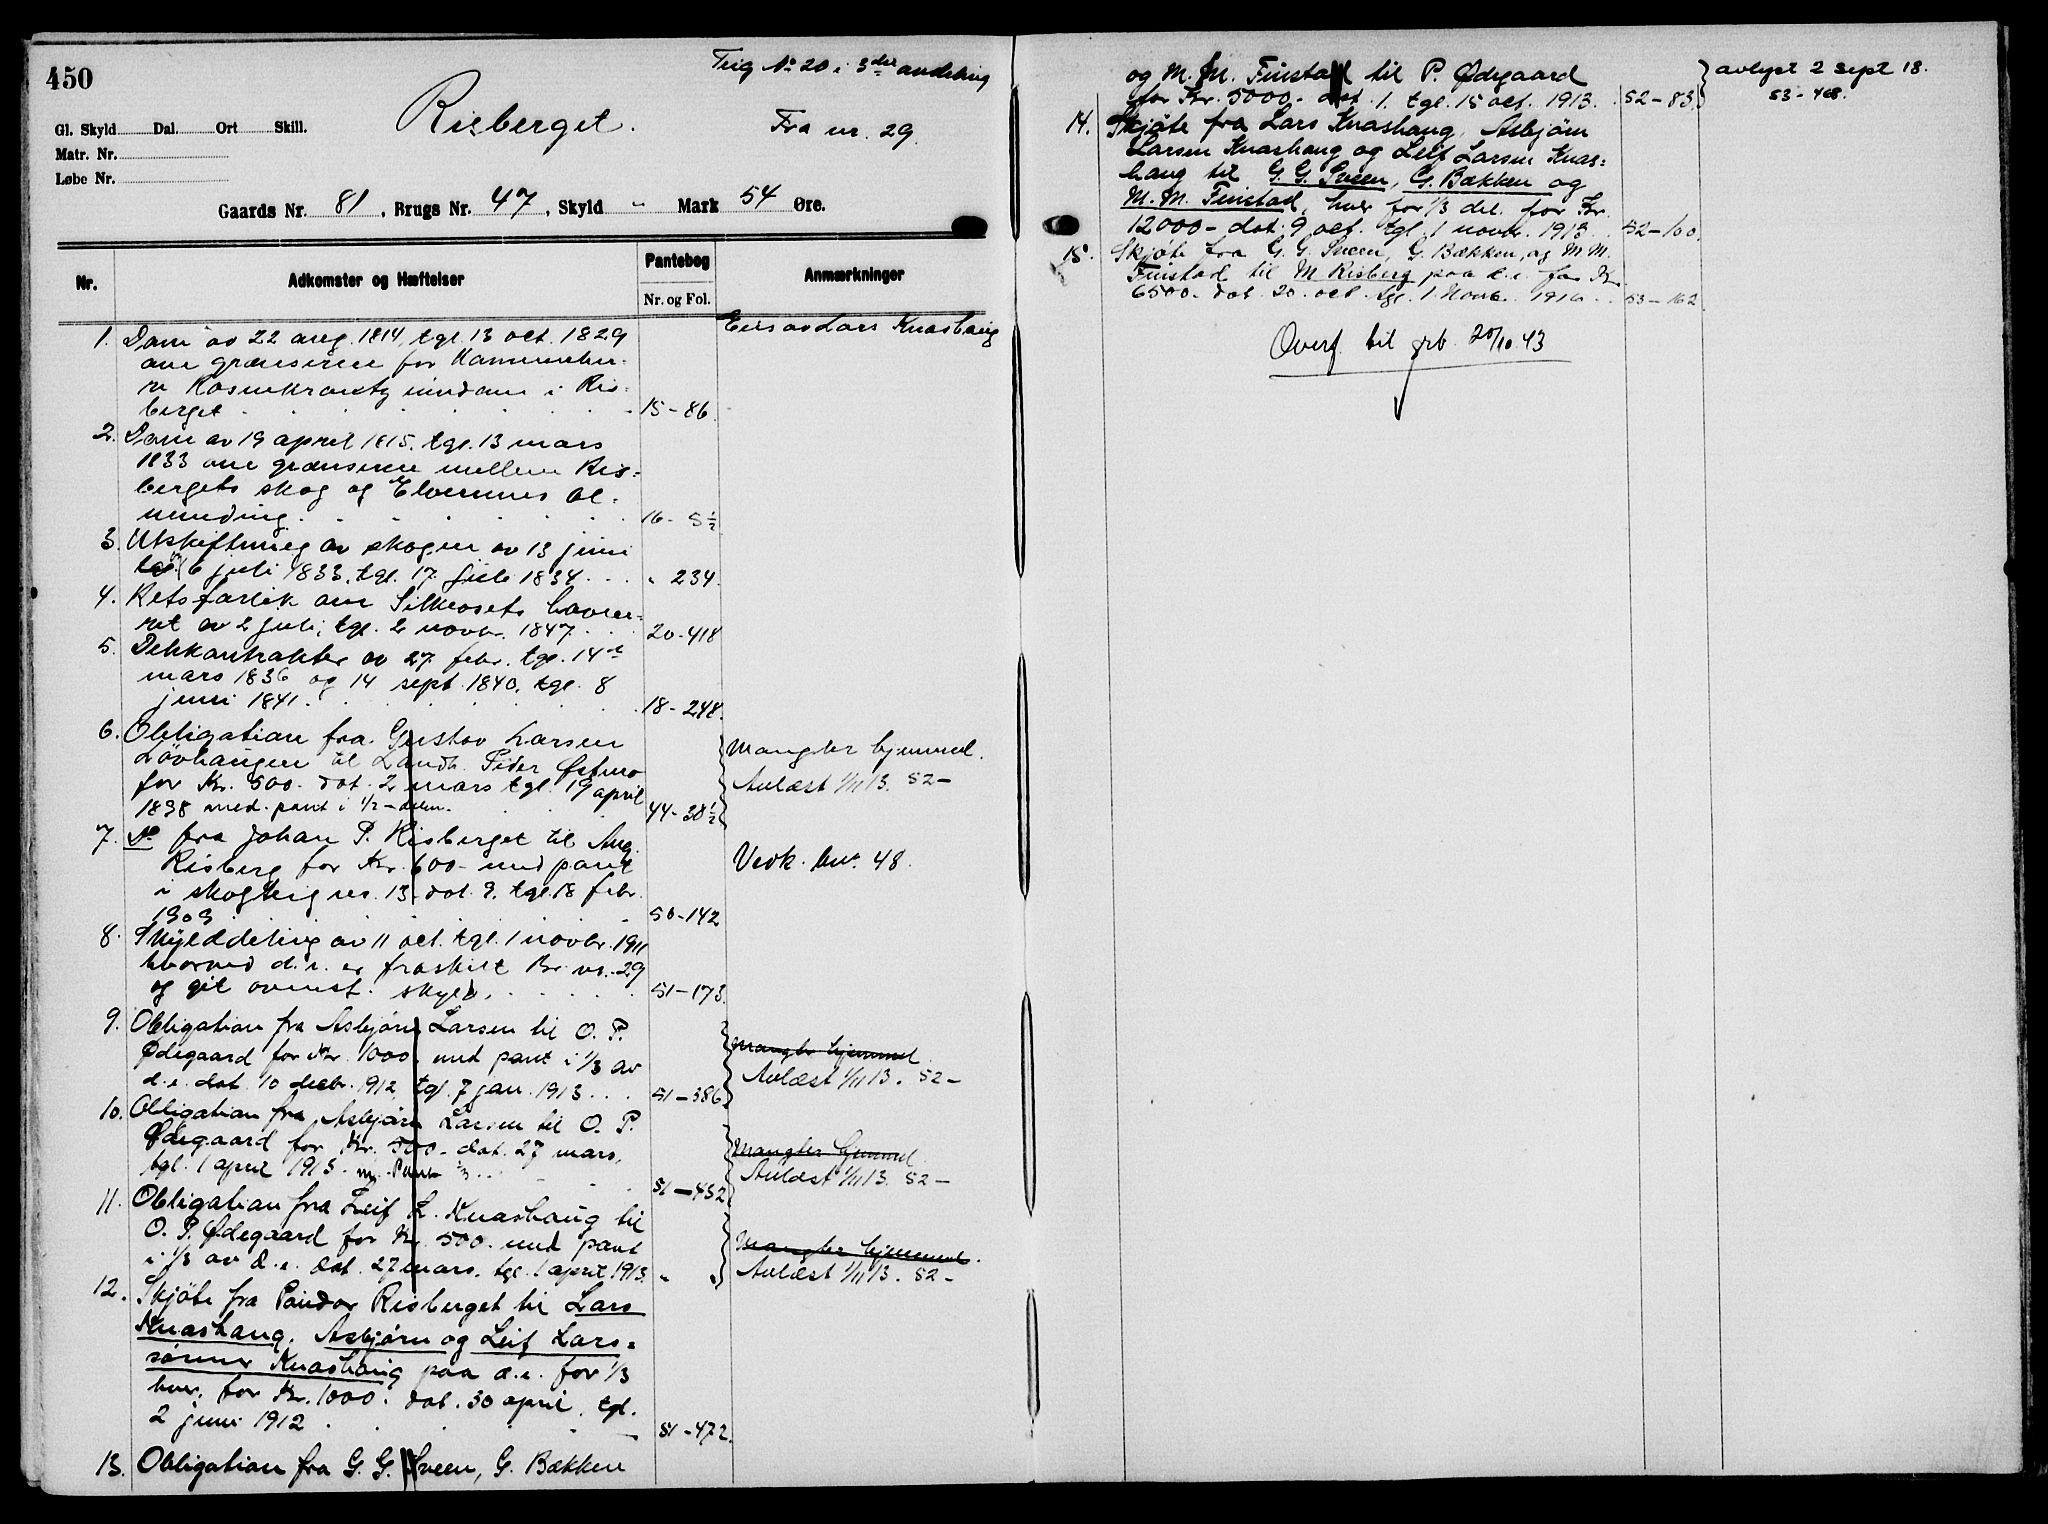 450
Teig No 20 i 3die avdeling
Risberget.
Fra nr. 29.
Gl. Skyld Dal. Ort Skill.
Matr. Nr.
Løbe Nr.
Gaards Nr. 81, Brugs Nr. 47, Skyld - Mark 54 Øre.
Nr. Adkomster og Hæftelser Pantebog Anmærkninger
Nr. og Fol.
Eies av Lars Knashaug
1. Dom av 22 aug. 1814, tgl. 13 oct. 1829
om grænserne for Kammerher-
re Rosenkrantz eiendom i Ris-
berget 15-86.
2. Dom av 19 april 1815, tgl. 13 mars
1833 om grænserne mellem Ris-
bergets skog og Elverums al-
minding. 16- 5½
3. Utskiftning av skogen av 13 juni
til 6 juli 1833, tgl. 17 juli 1834 " 234.
4. Retsforlik om havne-
ret av 2 juli, tgl. 2 novbr. 1847 20-418
5. Delekontrakter av 27 febr. tgl. 14de
mars 1836 og 14 sept. 1840, tgl. 8
juni 1841. 18-248.
6. Obligation fra Gustav Larsen
Løvhaugen til Landh. Peder Østmo
for Kr. 500. dat. 2 mars tgl. 19 april
1898 med pant i ½-delen. 44-38½
Mangler hjemmel.
Avlæst 1/11 13. 52-
7. Do fra Johan P. Risberget til Aug.
Risberg for Kr. 600 - med pant
i skogteig nr. 13 dat. 9. tgl. 18 febr.
1909 50-142
Vedk. bnr. 48.
8. Skylddeling av 11 oct. tgl. 1 novbr. 1911
hvorved d. e. er fraskilt Br. nr. 29
og git ovenst. skyld. 51-173.
9. Obligation fra Asbjørn Larsen til O. P.
Ødegaard for Kr. 1000. med pant i 1/3 av
d. e. dat. 10 decbr. 1912, tgl. 7 jan. 1913 51-386
Mangler hjemmel.
Avlæst 1/11 13. 52-
10. Obligation fra Asbjørn Larsen til O. P.
Ødegaard for Kr. 500 - dat. 27 mars,
tgl. 1 april 1913 - m. Pant 1/3 51-432
Mangler hjemmel.
Avlæst 1/11 13. 52-
11. Obligation fra Leif L. Knashaug til
O. P. Ødegaard for Kr. 500 - med pant
i 1/3 av d. e. dat. 27 mars. tgl. 1 april 1913. " "
Mangler hjemmel.
Avlæst 1/11 13. 52-
12. Skjøte fra Risberget til Lars
Knashaug, Asbjørn og Leif Lars-
sønner Knashaug paa d. e. for 1/3
hver, for Kr. 1000. dat. 30 april, tgl.
2 juni 1912 51-472.
13. Obligation fra G. G. Sveen, G. Bækken
og M. M. Finstad til P. Ødegaard
for Kr. 5000 - dat. 1. tgl. 15 oct. 1913. 52-83.
avlyst 2 sept 18.
53-468.
14. Skjøte fra Lars Knashaug, Asbjørn
Larsen Knashaug og Leif Larsen Knas-
haug til G. G. Sveen, G. Bækken og
M. M. Finstad, hver for 1/3 del. for Kr.
12000 - dat. 9 oct. tgl. 1 novbr. 1913 52-100.
15. Skjøte fra G. G. Sveen, G. Bækken, og M M
Finstad til M. Risberg paa d. e. for Kr
6500 - dat. 20. oct. tgl. 1 Novb. 1916 53-162
Overf. til grb. 20/10.43